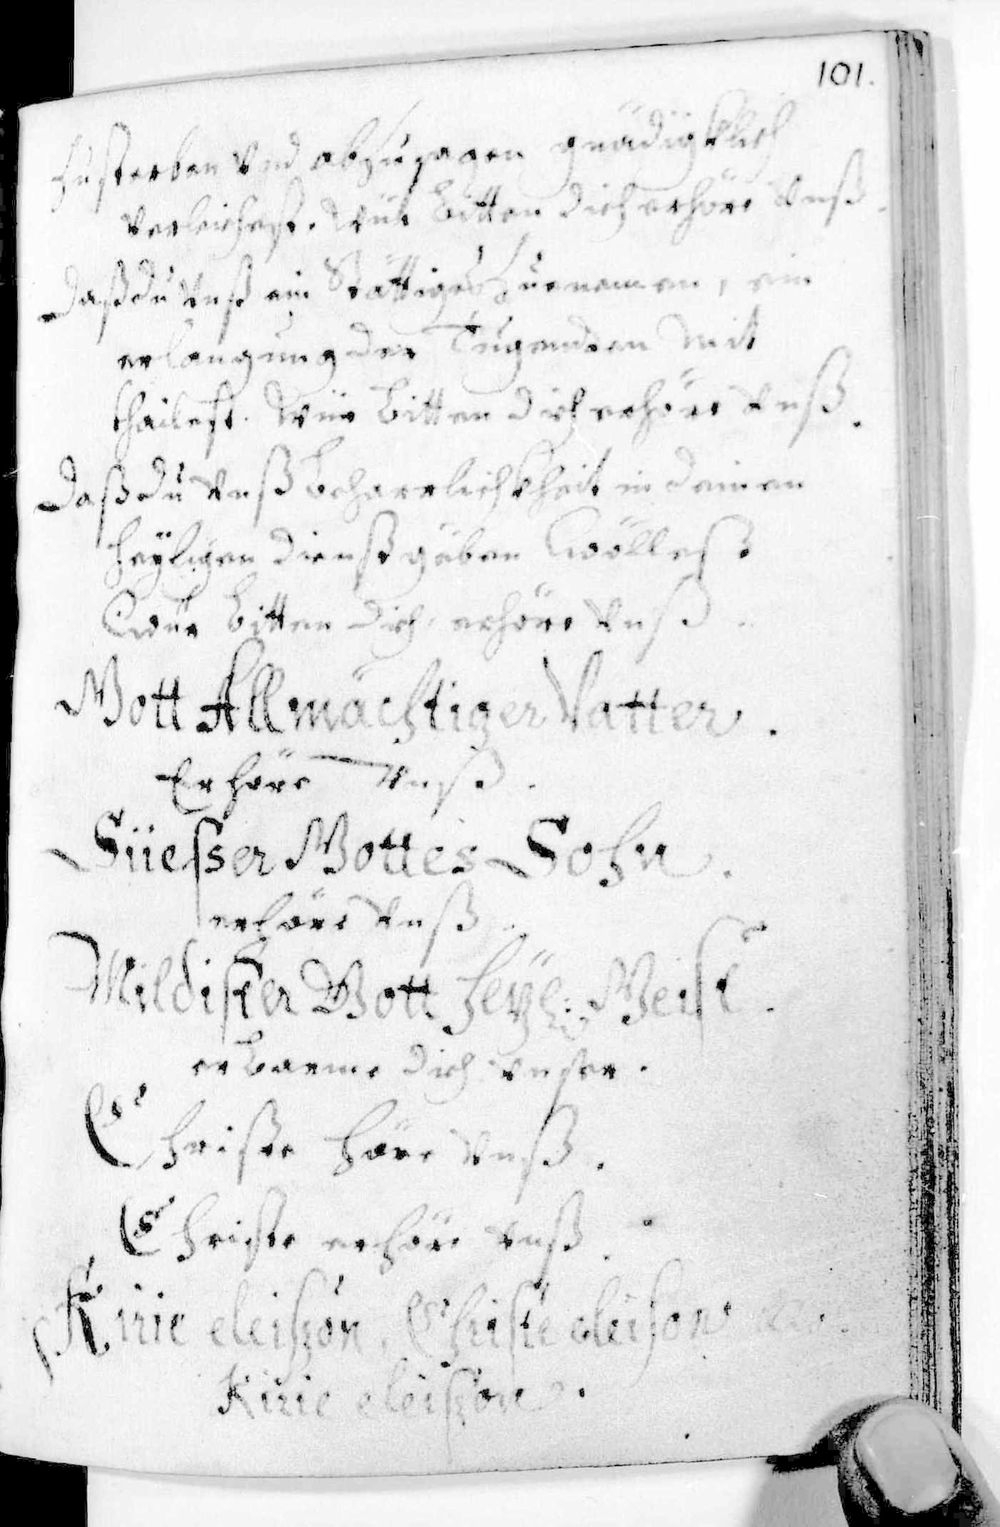 101.
Zusterben vnd abzusagen gnädigklich
verleichest. Wür bitten dich erhöre vnß.
Daß du vnß ein Stättiges Zuenemen, ein
erlangung der Tugenden mit
thailest. Wür bitten dich erhöre vnß.
Daß du vnß beharrlichkheit in deinen
heÿligen dienst gäben wöllest
Wür bitten dich erhöre vnß.
Gott Allmächtiger Vatter.
Erhöre vnß.
Süesser Gottes Sohn.
erhöre vnß.
Mildister Gott heÿl: Geist.
erbarme dich vnser.
Christe höre vnß.
Christe erhöre vnß.
Kirie eleißon, Christe eleison
Kirie eleißon.